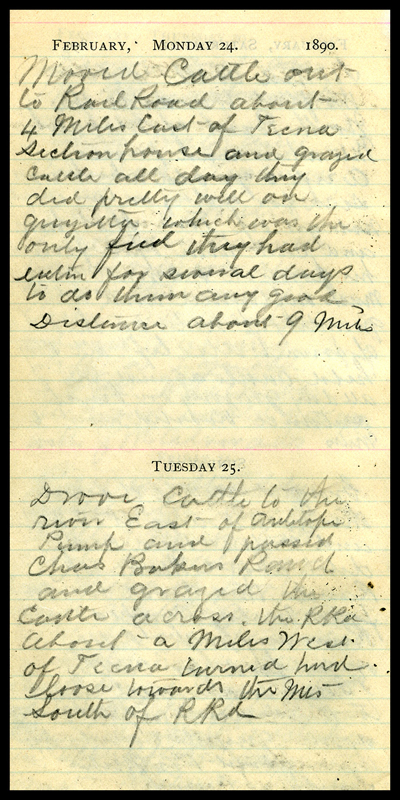 FEBRUARY, MONDAY 24. 1890.
Moved Cattle out
to RailRoad about
4 Miles East of Tecna
Section house and grazed
Cattle all day they
did pretty well on
which was the
only feed they had
eaten for several days
to do them any good
Distance about 9 Miles
TUESDAY 25.
Drove Cattle to the
river East of Antelope
Pump and passed
Chas Bakers Rand
and grazed the
Cattle across the RRd
about a Miles West
of Tecna turned herd
loose towards the Mts
South of RRd